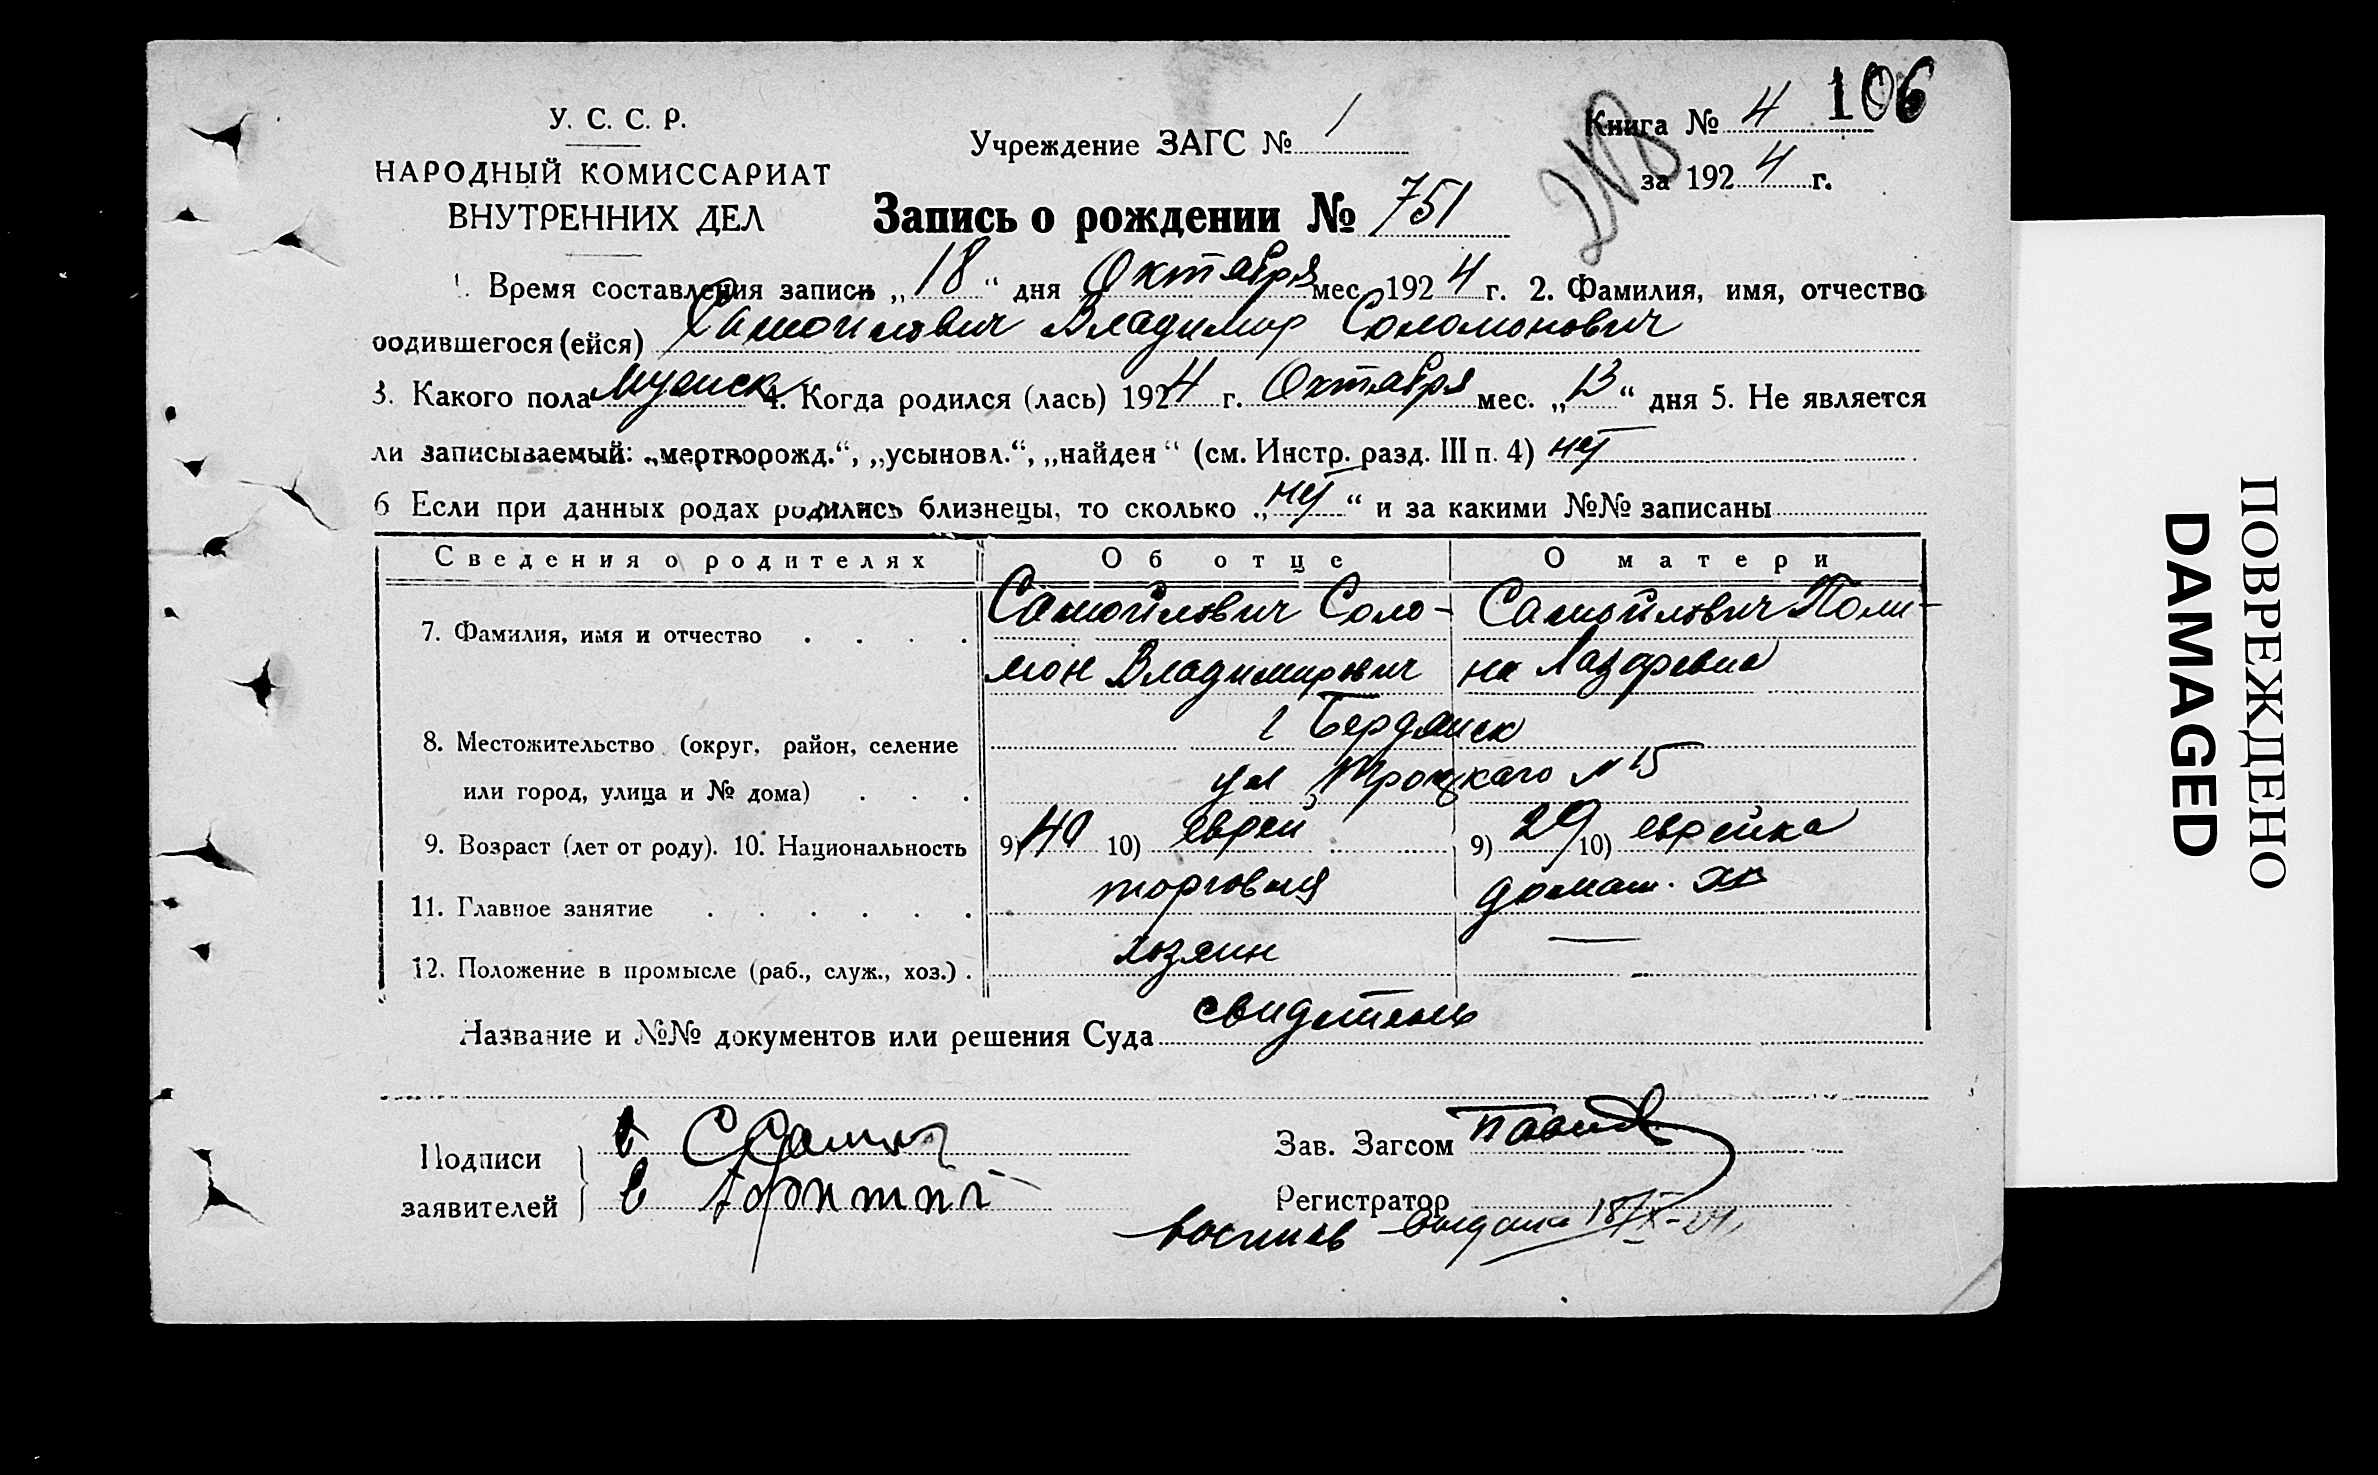 106
У. С. С. Р.
НАРОДНЫЙ КОМИССАРИАТ
ВНУТРЕННИХ ДЕЛ
Учреждение ЗАГС № 1
Книга № 4
за 1924 г.
Запись о рождении № 751
1. Время составления записи „18“ дня Октября мес. 1924 г. 2. Фамилия, имя, отчество
родившегося (ейся) Самойлович Владимир Соломонович
3. Какого пола мужск 4. Когда родился (лась) 1924 г. Октября мес. „13“ дня 5. Не является
ли записываемый: „мертворожд.“, „усыновл.“, „найден“ (см. Инстр. разд. III п. 4) нет
6 Если при данных родах родились близнецы, то сколько „нет“ и за какими №№ записаны
Сведения о родителях Об отце О матери
7. Фамилия, имя и отчество Самойлович Соло- Самойлович Поли-
мон Владимирович на Лазаревна
8. Местожительство (округ, район, селение г Бердянск
или город, улица и № дома) ул Троцкаго № 15
9. Возраст (лет от роду). 10. Национальность 9) 40 10) еврей 9) 29 10) еврейка
11. Главное занятие торговец домаш. хоз
12. Положение в промысле (раб., служ., хоз.) хозяин —
Название и №№ документов или решения Суда свидетель
Подписи
заявителей
Зав. Загсом
Регистратор
выдана 18/X-24
ПОВРЕЖДЕНО
DAMAGED